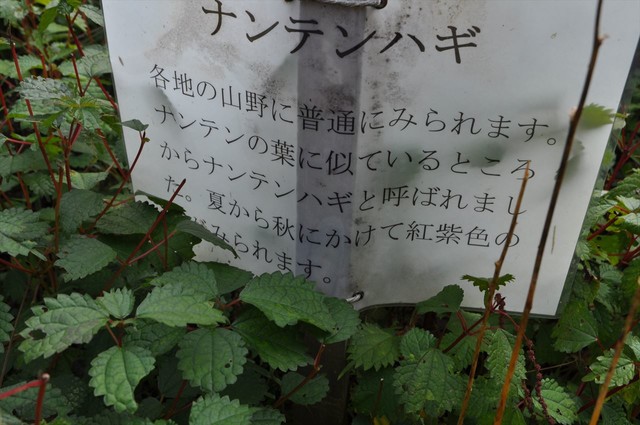 ナンテンハギ
各地の山野に普通にみられます。
ナンテンの葉に似ているところ
からナンテンハギと呼ばれまし
た。夏から秋にかけて紅紫色の
みられます。